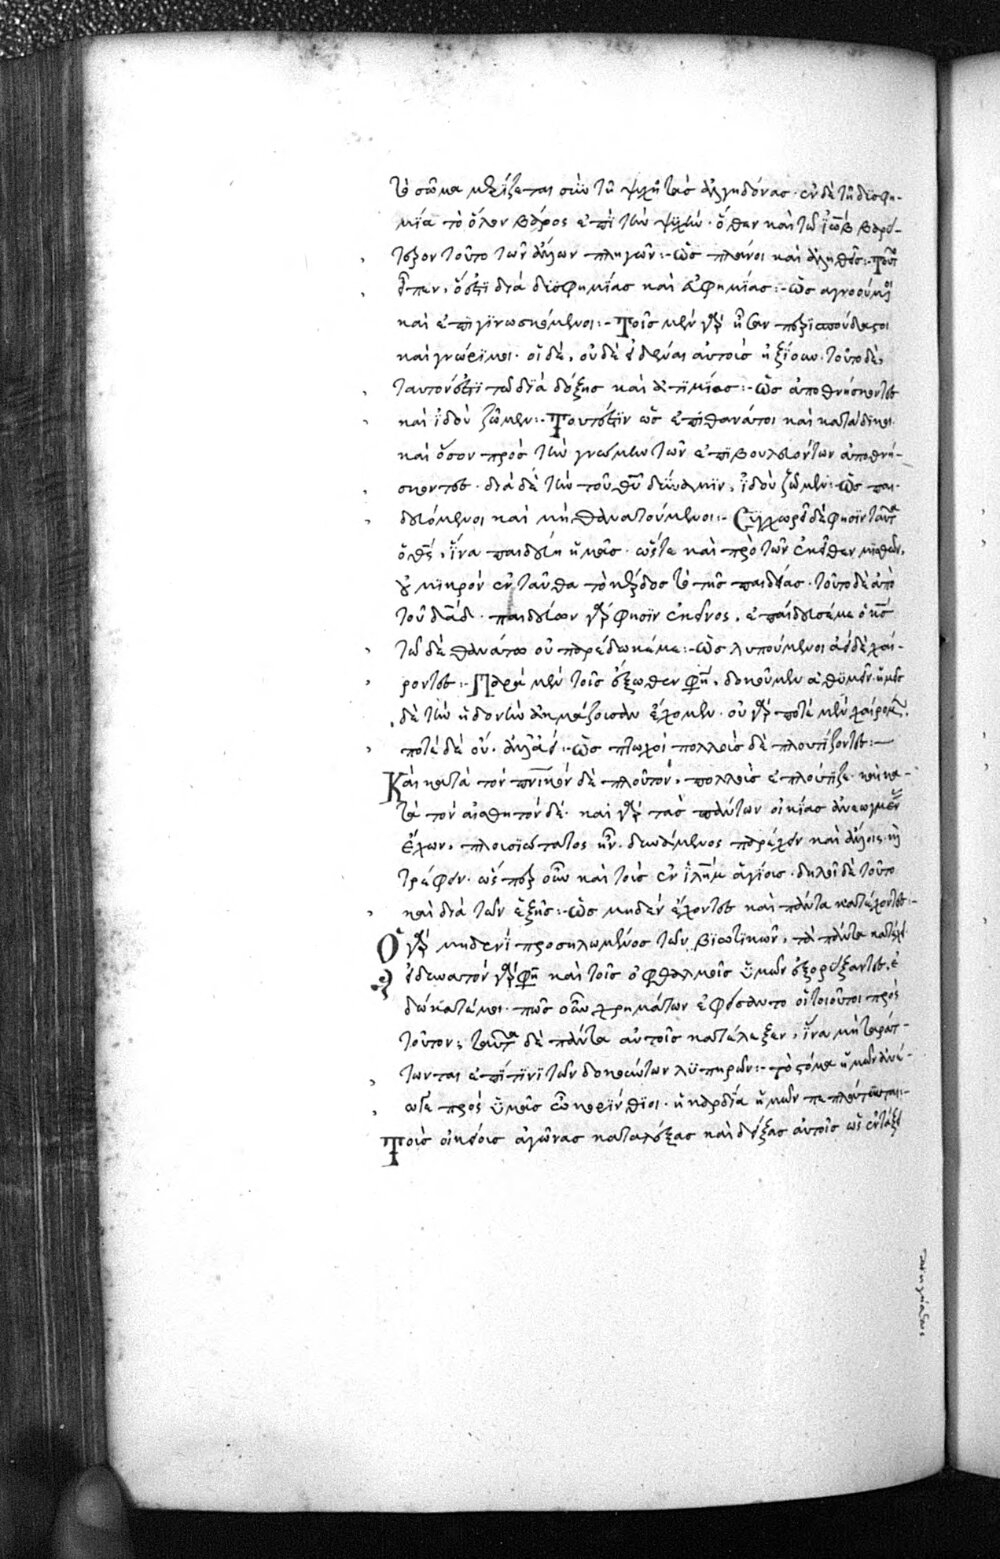 τὸ σῶμα μερίζεται σὺν τῇ ψυχῇ τὰς ἀλγηδόνας· ἐν δὲ τῇ δυσφη-
μίᾳ τὸ ὅλον βάρος ἐπὶ τὴν ψυχήν· ὅθεν καὶ τῷ ἰὼβ βαρύ-
τερον τοῦτο τῶν ἄλλων πληγῶν:- ὡς πλάνοι καὶ ἀληθεῖς:- Τοῦτο
εἶπεν, ὅ ἐστι διὰ δυσφημίας καὶ εὐφημίας:- ὡς ἀγνοούμενοι
καὶ ἐπιγινωσκόμενοι:- Τοῖς μὲν γὰρ ἦσαν περισπούδαστοι
καὶ γνώριμοι· οἱ δὲ, οὐδὲ εἰδέναι αὐτοὺς ἠξίουν· τοῦτο δὲ,
ταυτόν ἐστι τῷ διὰ δόξης καὶ ἀτιμίας:- ὡς ἀποθνήσκοντες
καὶ ἰδοὺ ζῶμεν:- Τουτέστιν ὡς ἐπιθανάτιοι καὶ κατάδικοι
καὶ ὅσον πρὸς τὴν γνώμην τῶν ἐπιβουλευόντων ἀποθνή-
σκοντες· διὰ δὲ τὴν τοῦ θεοῦ δύναμιν, ἰδοὺ ζῶμεν: ὡς παι-
δευόμενοι καὶ μὴ θανατούμενοι:- Συγχωρεῖ δὲ φησιν ταῦτα
ὁ θεός, ἵνα παιδεύῃ ἡμᾶς· ὥστε καὶ πρὸ τῶν ἐκεῖθεν μισθῶν,
οὐ μικρὸν ἐνταῦθα τὸ κέρδος τὸ τῆς παιδείας· τοῦτο δὲ ἀπὸ
τοῦ δαδ· παιδεύων γάρ φησιν ἐκεῖνος, ἐπαίδευσέ με ὁ κς
τῷ δὲ θανάτῳ οὐ παρέδωκέ με:- ὡς λυπούμενοι ἀεὶ δὲ χαί-
ροντες:- Παρὰ μὲν τοῖς ἔξωθεν φησὶ, δοκοῦμεν ἀθυμεῖν· ἡμεῖς
δὲ τὴν ἡδονὴν ἀκμάζουσαν ἔχομεν· οὐ γάρ ποτε μὲν χαίρομεν,
ποτὲ δὲ οὔ· ἀλλ' ἀεί:- ὡς πτωχοὶ πολλοὺς δὲ πλουτίζοντες:-
Καὶ κατὰ τὸν πνικὸν δὲ πλοῦτον, πολλοὺς ἐπλούτιζε καὶ κα-
τὰ τὸν αἰσθητὸν δέ· καὶ γὰρ τὰς πάντων οἰκίας ἀνεῳγμένας
ἔχων, πλουσιώτατος ἦν· δυνάμενος παρέχειν καὶ ἄλλοις καὶ
τρέφειν· ὥσπερ οὖν καὶ τοῖς ἐν ἱλημ ἁγίοις· δηλοῖ δὲ τοῦτο
καὶ διὰ τῶν ἑξῆς:- ὡς μηδὲν ἔχοντες καὶ πάντα κατέχοντες:-
Ὁ γὰρ μηδενὶ προσηλωμένος τῶν βιωτικῶν, τὰ πάντα κατέχει
εἰ δυνατὸν γάρ φησι καὶ τοὺς ὀφθαλμοὺς ὑμῶν ἐξορύξαντες, ἐ
δώκατέ μοι· πῶς οὖν χρημάτων ἐφείσαντο οἱ τοιοῦτοι πρὸς
τοῦτον; ταῦτα δὲ πάντα αὐτοῖς κατέλεξεν, ἵνα μὴ ταράτ-
τωνται ἐπί τινι τῶν δοκούντων λυπηρῶν:- τὸ στόμα ἡμῶν ἀνέ-
ῳγε πρὸς ὑμᾶς ὦ κορίνθιοι· ἡ καρδία ἡμῶν πεπλάτυνται:-
Τοὺς οἰκείους ἀγῶνας καταλέξας καὶ δείξας αὐτοῖς ὡς ἐντάξει